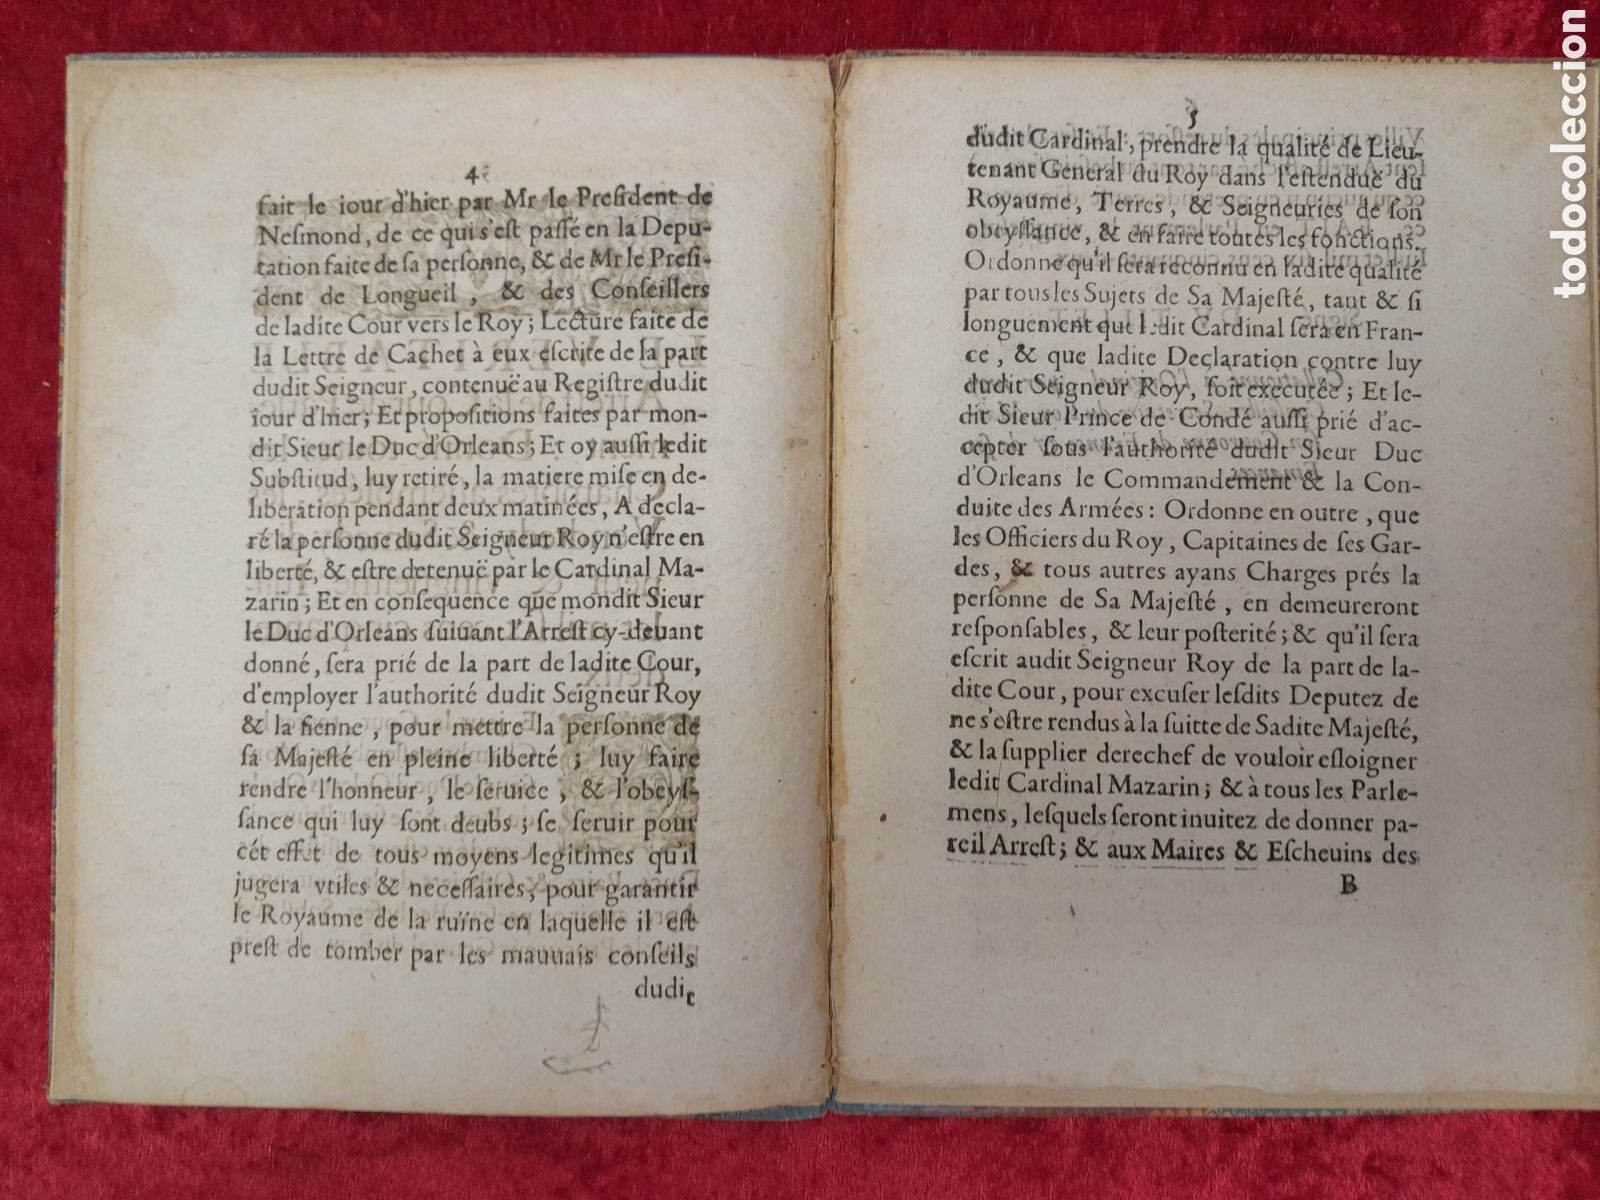 4
fait le iour d'hier par Mr le Preſident de
Neſmond, de ce qui s'eſt paſſé en la Depu-
tation faite de ſa perſonne, & de Mr le Preſi-
dent de Longueil, & des Conſeillers
de ladite Cour vers le Roy; Lecture faite de
la Lettre de Cachet à eux eſcrite de la part
dudit Seigneur, contenuë au Regiſtre dudit
iour d'hier; Et propoſitions faites par mon-
dit Sieur le Duc d'Orleans; Et oy auſſi ledit
Subſtitud, luy retiré, la matiere miſe en de-
liberation pendant deux matinées, A decla-
ré la perſonne dudit Seigneur Roy n'eſtre en
liberté, & eſtre detenuë par le Cardinal Ma-
zarin; Et en conſequence que mondit Sieur
le Duc d'Orleans ſuiuant l'Arreſt cy-deuant
donné, ſera prié de la part de ladite Cour,
d'employer l'authorité dudit Seigneur Roy
& la ſienne, pour mettre la perſonne de
ſa Majeſté en pleine liberté; luy faire
rendre l'honneur, le ſeruice, & l'obeyſ-
ſance qui luy ſont deubs; ſe ſeruir pour
cét effet de tous moyens legitimes qu'il
jugera vtiles & neceſſaires, pour garantir
le Royaume de la ruïne en laquelle il eſt
preſt de tomber par les mauuais conſeils
dudit
5
dudit Cardinal, prendre la qualité de Lieu-
tenant General du Roy dans l'eſtenduë du
Royaume, Terres, & Seigneuries de ſon
obeyſſance, & en faire toutes les fonctions.
Ordonne qu'il ſera reconnu en ladite qualité
par tous les Sujets de Sa Majeſté, tant & ſi
longuement que ledit Cardinal ſera en Fran-
ce, & que ladite Declaration contre luy
dudit Seigneur Roy, ſoit executée; Et le-
dit Sieur Prince de Condé auſſi prié d'ac-
cepter ſous l'authorité dudit Sieur Duc
d'Orleans le Commandement & la Con-
duite des Armées: Ordonne en outre, que
les Officiers du Roy, Capitaines de ſes Gar-
des, & tous autres ayans Charges prés la
perſonne de Sa Majeſté, en demeureront
reſponſables, & leur poſterité; & qu'il ſera
eſcrit audit Seigneur Roy de la part de la-
dite Cour, pour excuſer leſdits Deputez de
ne s'eſtre rendus à la ſuitte de Sadite Majeſté,
& la ſupplier derechef de vouloir eſloigner
ledit Cardinal Mazarin; & à tous les Parle-
mens, leſquels ſeront inuitez de donner pa-
reil Arreſt; & aux Maires & Eſcheuins des
B
todocoleccion